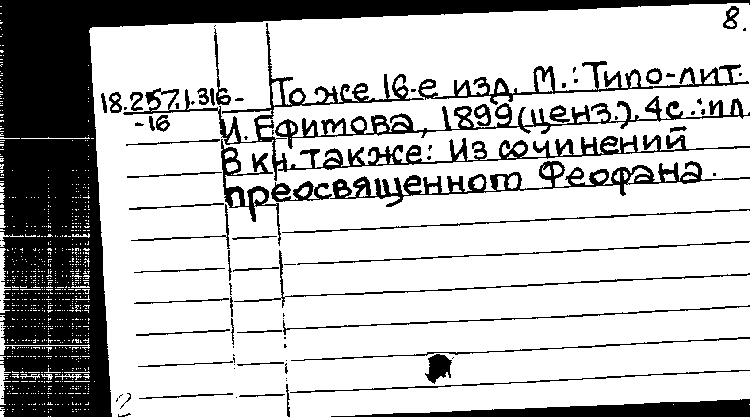 8.
18.257.1.316- То же. 16-е изд. М.: Типо-лит.
-16 И. Ефимова, 1899 (ценз.). 4 с.: ил.
В кн. также: Из сочинений
преосвященного Феофана.
2